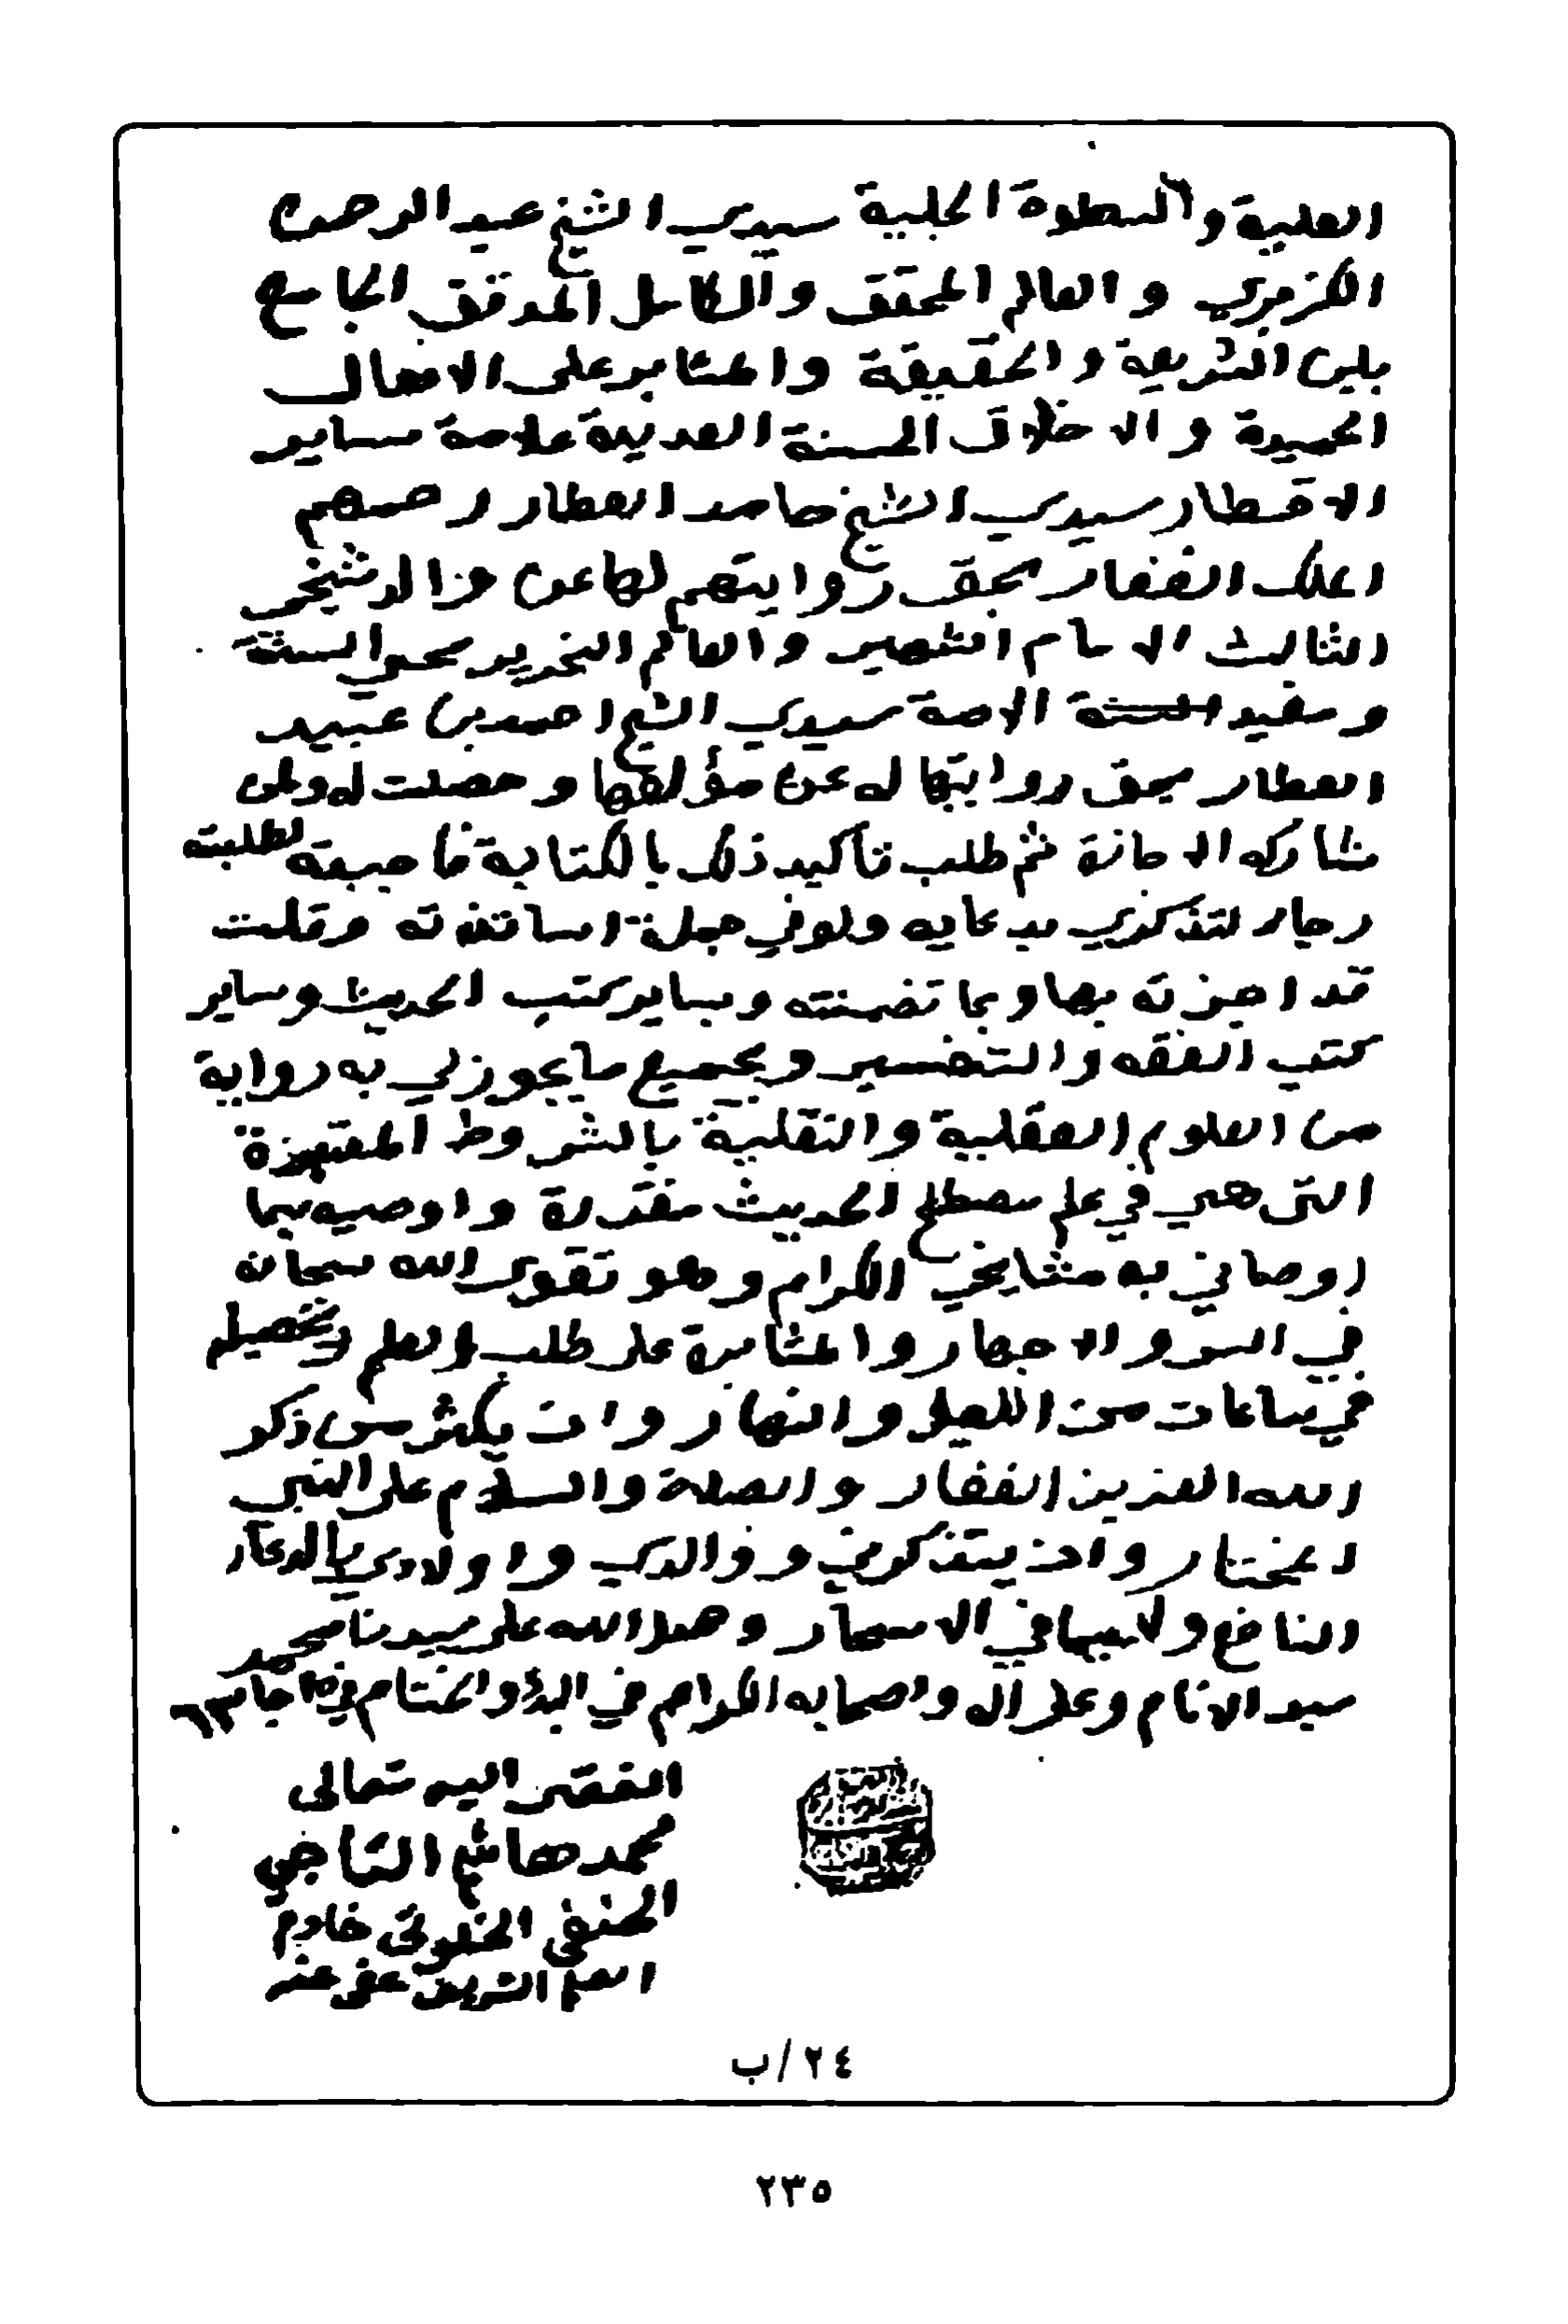 العلية والسطوة الجلية سيدي الشيخ عبد الرحمن
الكزبري والعالم المحقق والكامل المدقق الجامع
بين الشريعة والحقيقة والمثابر على الافعال
الحميدة والاخلاق الحسنة العديدة علامة ساير
الاقطار سيدي الشيخ حامد العطار رحمهم
الملك الغفار بحق روايتهم لها عن والد شيخي
الثالث الامام الشهير والعالم النحرير محي السنة
ومفيد السنة الامة سيدي الشيخ احمد بن عبيد
العطار بحق روايتها له عن مؤلفها وحصلت له ولمن
شاركه الاجازة ثم طلب تأكيد ذلك بالكتابة فاجبته لطلبته
رجاء لتذكري بدعايه ولو في جملة اساتذته وقلت
قد اجزته بها وبما تضمنته وبساير كتب الحديث وساير
كتب الفقه والتفسير وبجميع ما يجوز لي به رواية
من العلوم العقلية والنقلية بالشروط المعتبرة
التي هي في علم مصطلح الحديث مقررة واوصيه بما
اوصاني به مشايخي الكرام وهو تقوى الله سبحانه
في السر والاجهار والمثابرة على طلب العلم وتحصيله
في ساعات من الليل والنهار وان يكثر من ذكر
الله العزيز الغفار والصلاة والسلام على النبي
المختار وان يتذكرني ووالدي واولادي بالدعاء
النافع ولا سيما في الاسحار وصلى الله على سيدنا محمد
سيد الانام وعلى آله واصحابه الكرام في البدؤ والختام في ١٥ جا
الفقير اليه تعالى
محمد هاشم التاجي
الحنفي الخلوتي خادم
العلم الشريف عفي عنه
٢٤/ب
٢٣٥